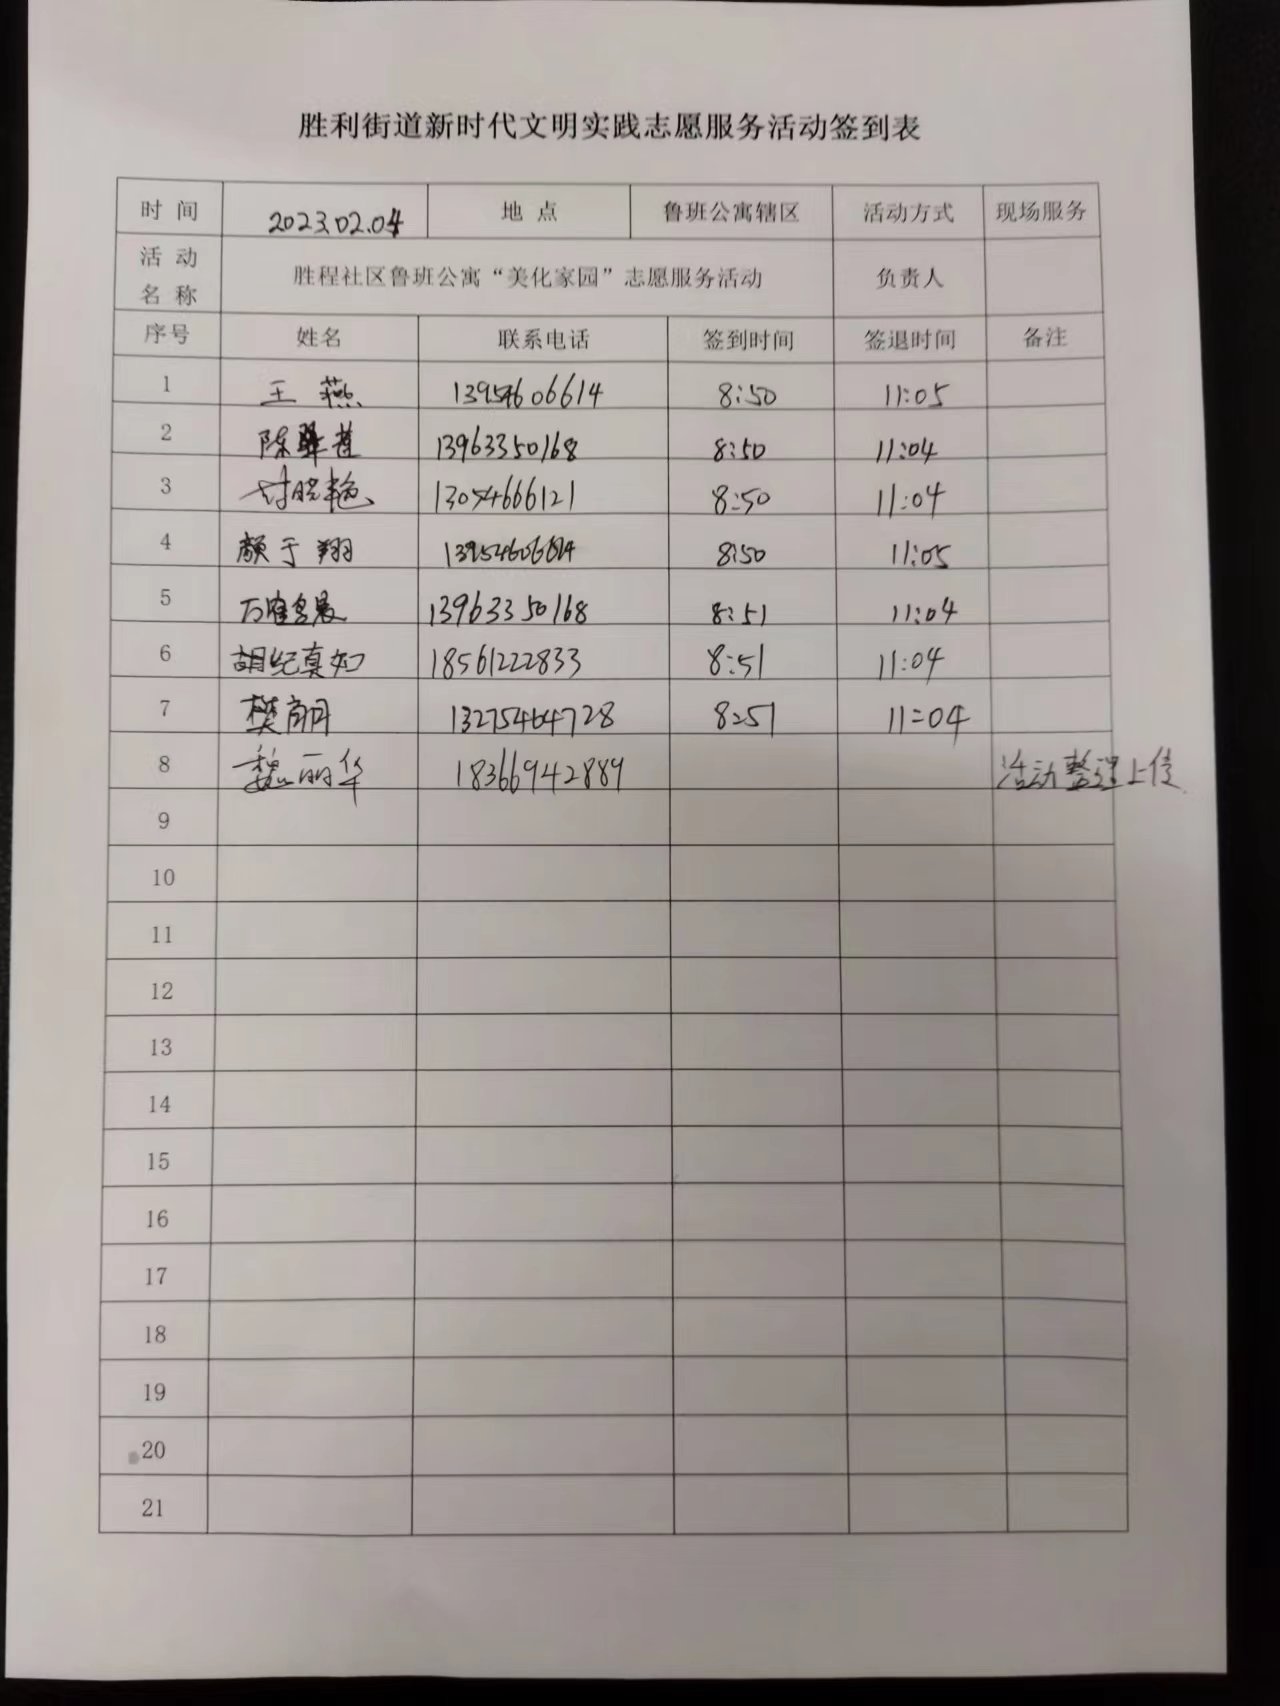 胜利街道新时代文明实践志愿服务活动签到表
时 间 2023.02.04 地 点 鲁班公寓辖区 活动方式 现场服务
活 动 名 称 胜程社区鲁班公寓“美化家园”志愿服务活动 负责人
序号 姓名 联系电话 签到时间 签退时间 备注
1 王燕 13954606614 8:50 11:05
2 陈 13963350168 8:50 11:04
3 13054666121 8:50 11:04
4 颜于翔 13954606614 8:50 11:05
5 13963350168 8:51 11:04
6 胡纪真如 18561222833 8:51 11:04
7 樊 13275464728 8:51 11:04
8 魏丽华 18366942889 活动整理上传
9
10
11
12
13
14
15
16
17
18
19
20
21